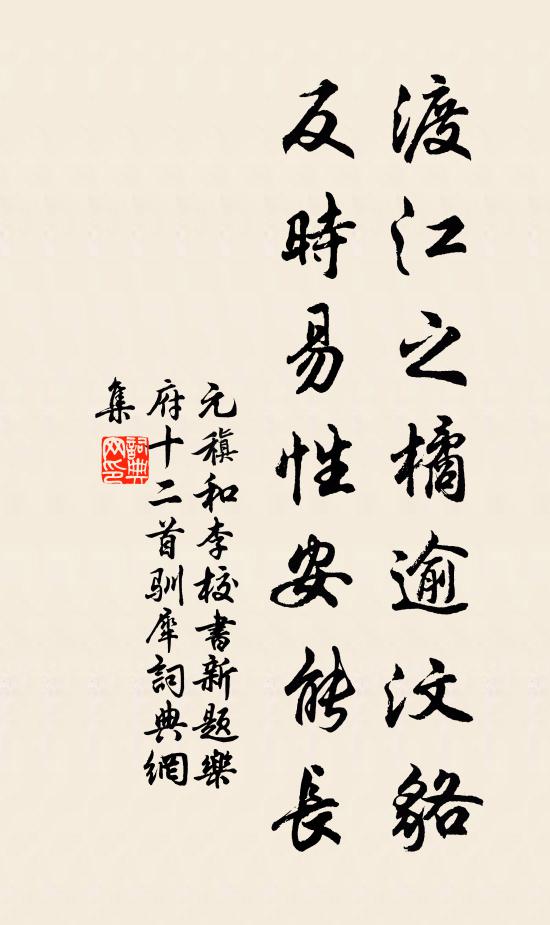 渡江之橘逾汶貉
反時易性安能長
元稹和李校書新題樂
府十二首馴犀詞典網
集
詞典網印